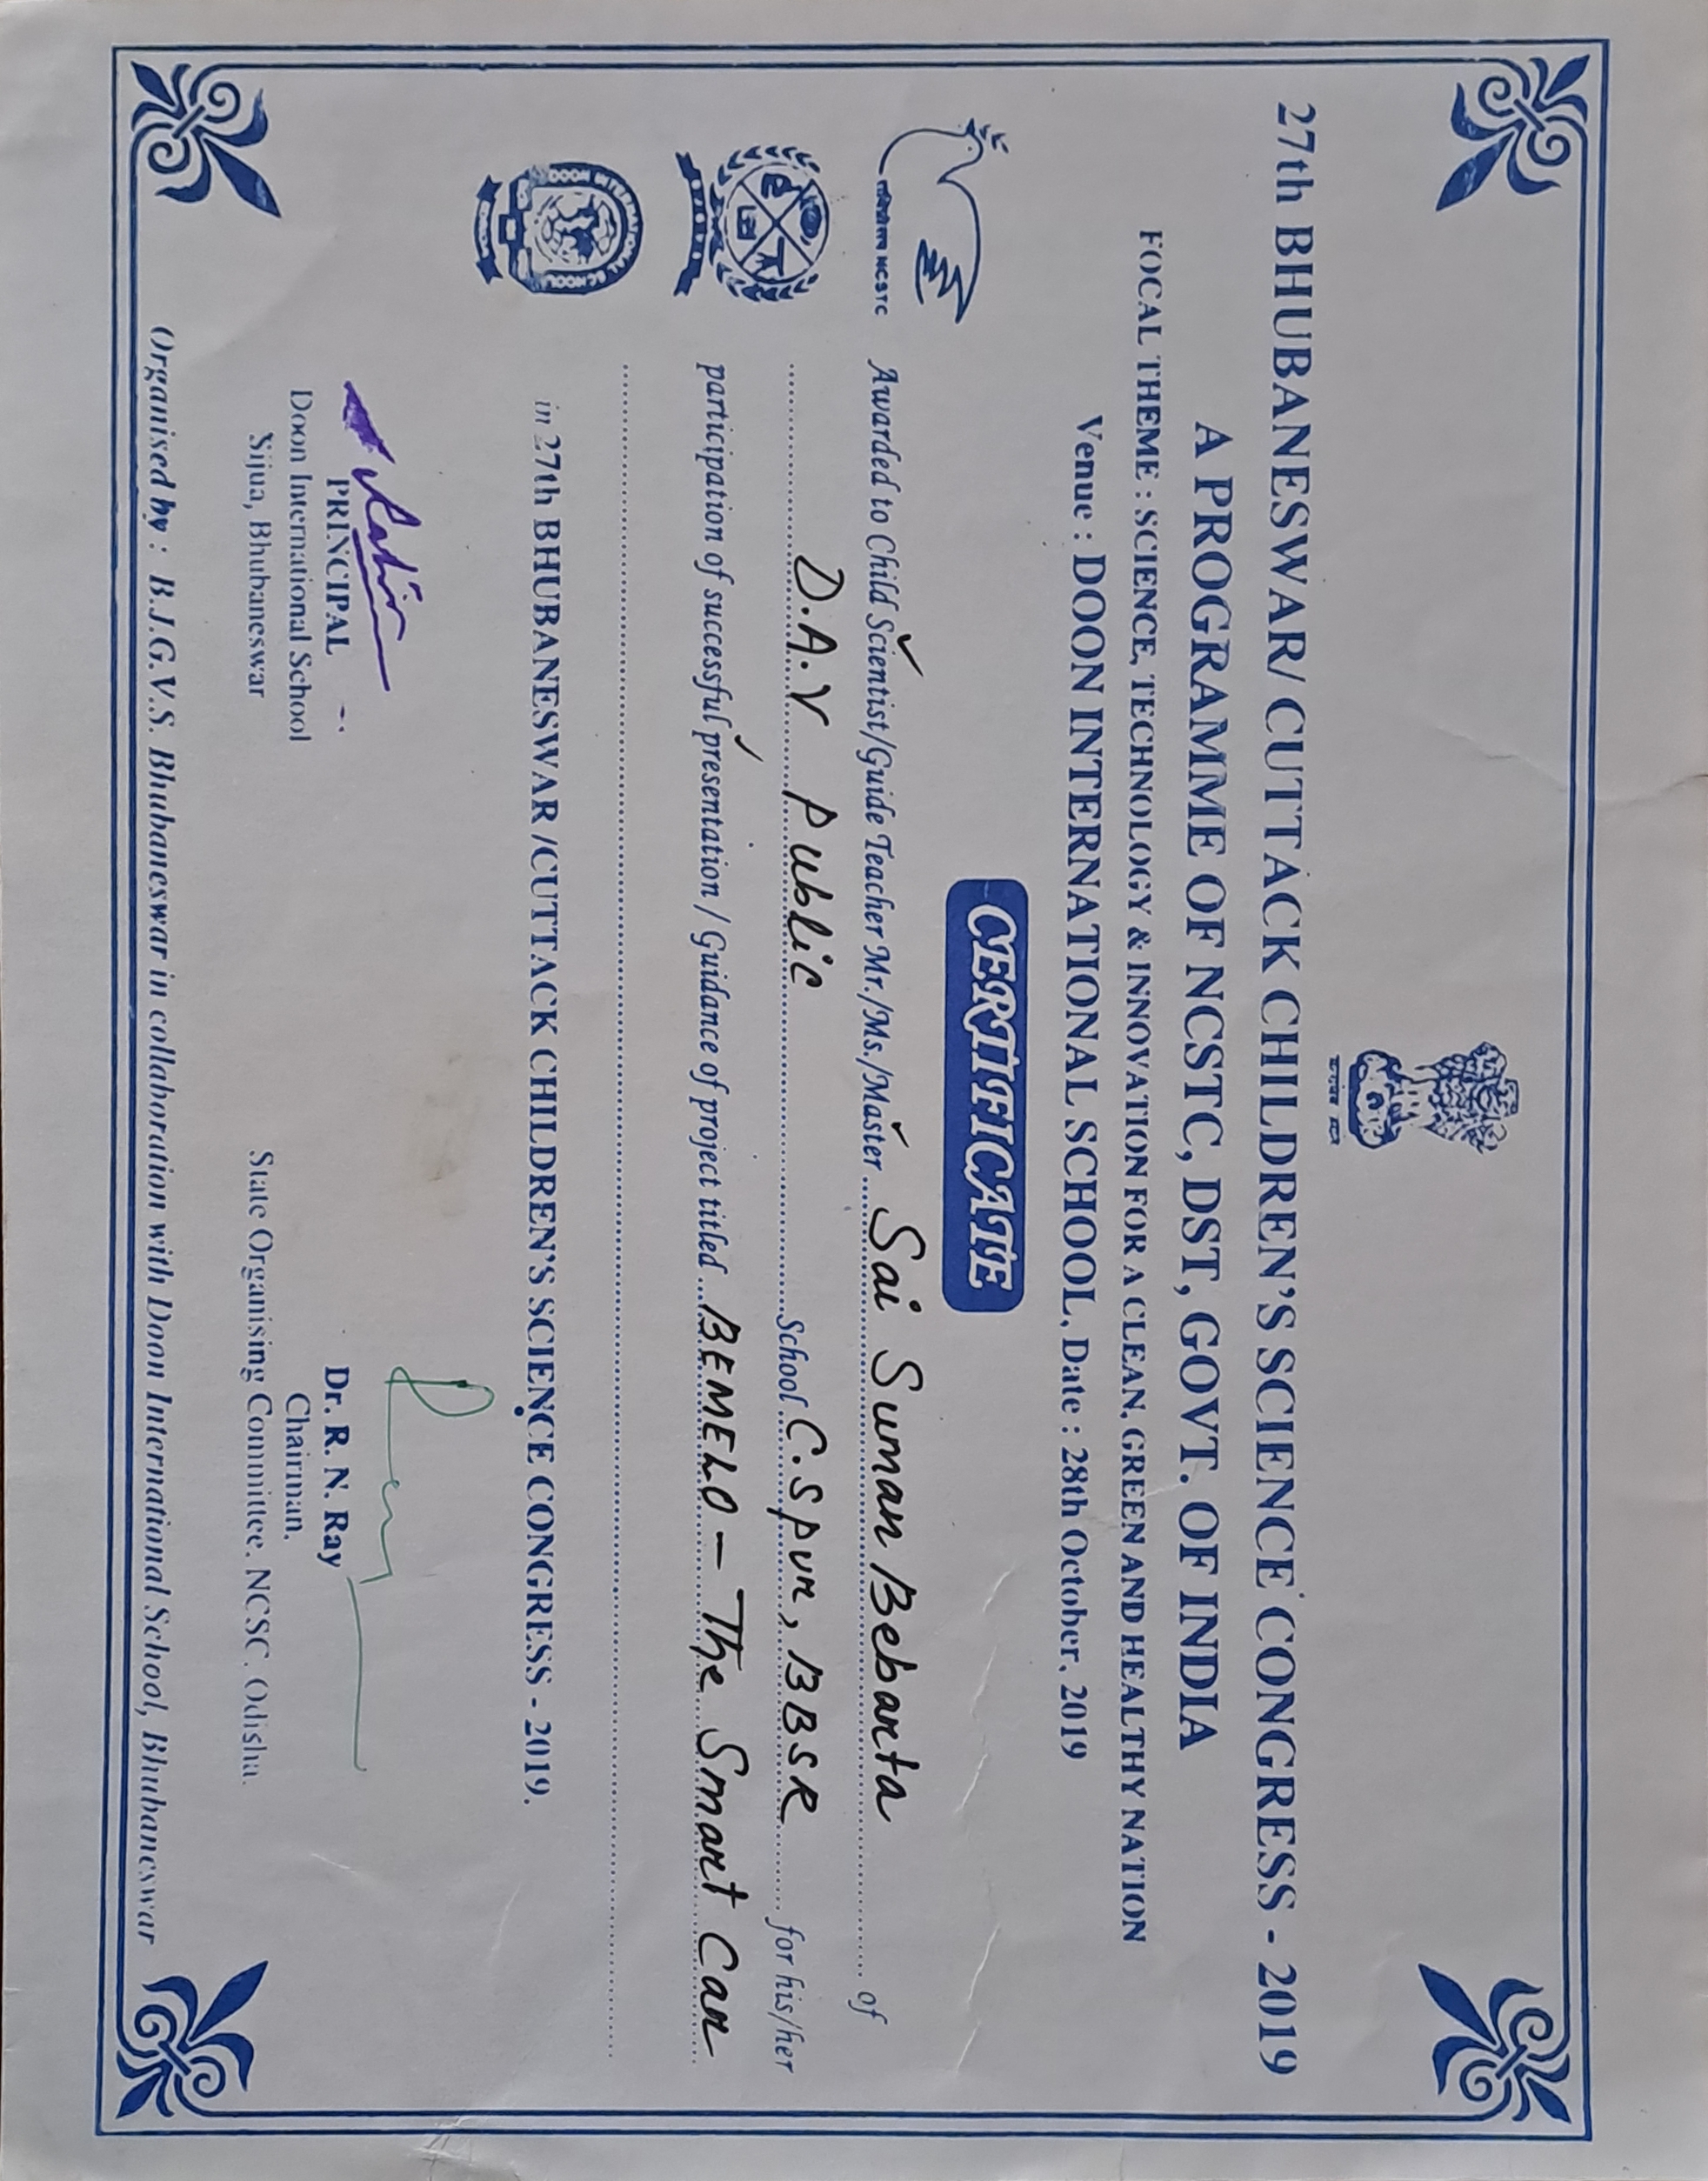 27th BHUBANESWAR/ CUTTACK CHILDREN'S SCIENCE CONGRESS - 2019
A PROGRAMME OF NCSTC, DST, GOVT. OF INDIA
FOCAL THEME : SCIENCE, TECHNOLOGY & INNOVATION FOR A CLEAN, GREEN AND HEALTHY NATION
Venue : DOON INTERNATIONAL SCHOOL, Date : 28th October, 2019
CERTIFICATE
NCSTC
Awarded to Child Scientist/Guide Teacher Mr./Ms./Master Sai Suman Bebarta of
D.A.V Public School C.S pur, BBSR for his/her
participation of successful presentation / Guidance of project titled BEMELO - The Smart Car
DOON INTERNATIONAL SCHOOL
in 27th BHUBANESWAR /CUTTACK CHILDREN'S SCIENCE CONGRESS - 2019.
Ray
PRINCIPAL
Doon International School
Sijua, Bhubaneswar
Dr. R. N. Ray
Chairman,
State Organising Committee, NCSC, Odisha.
Organised by : B.J.G.V.S. Bhubaneswar in collaboration with Doon International School, Bhubaneswar